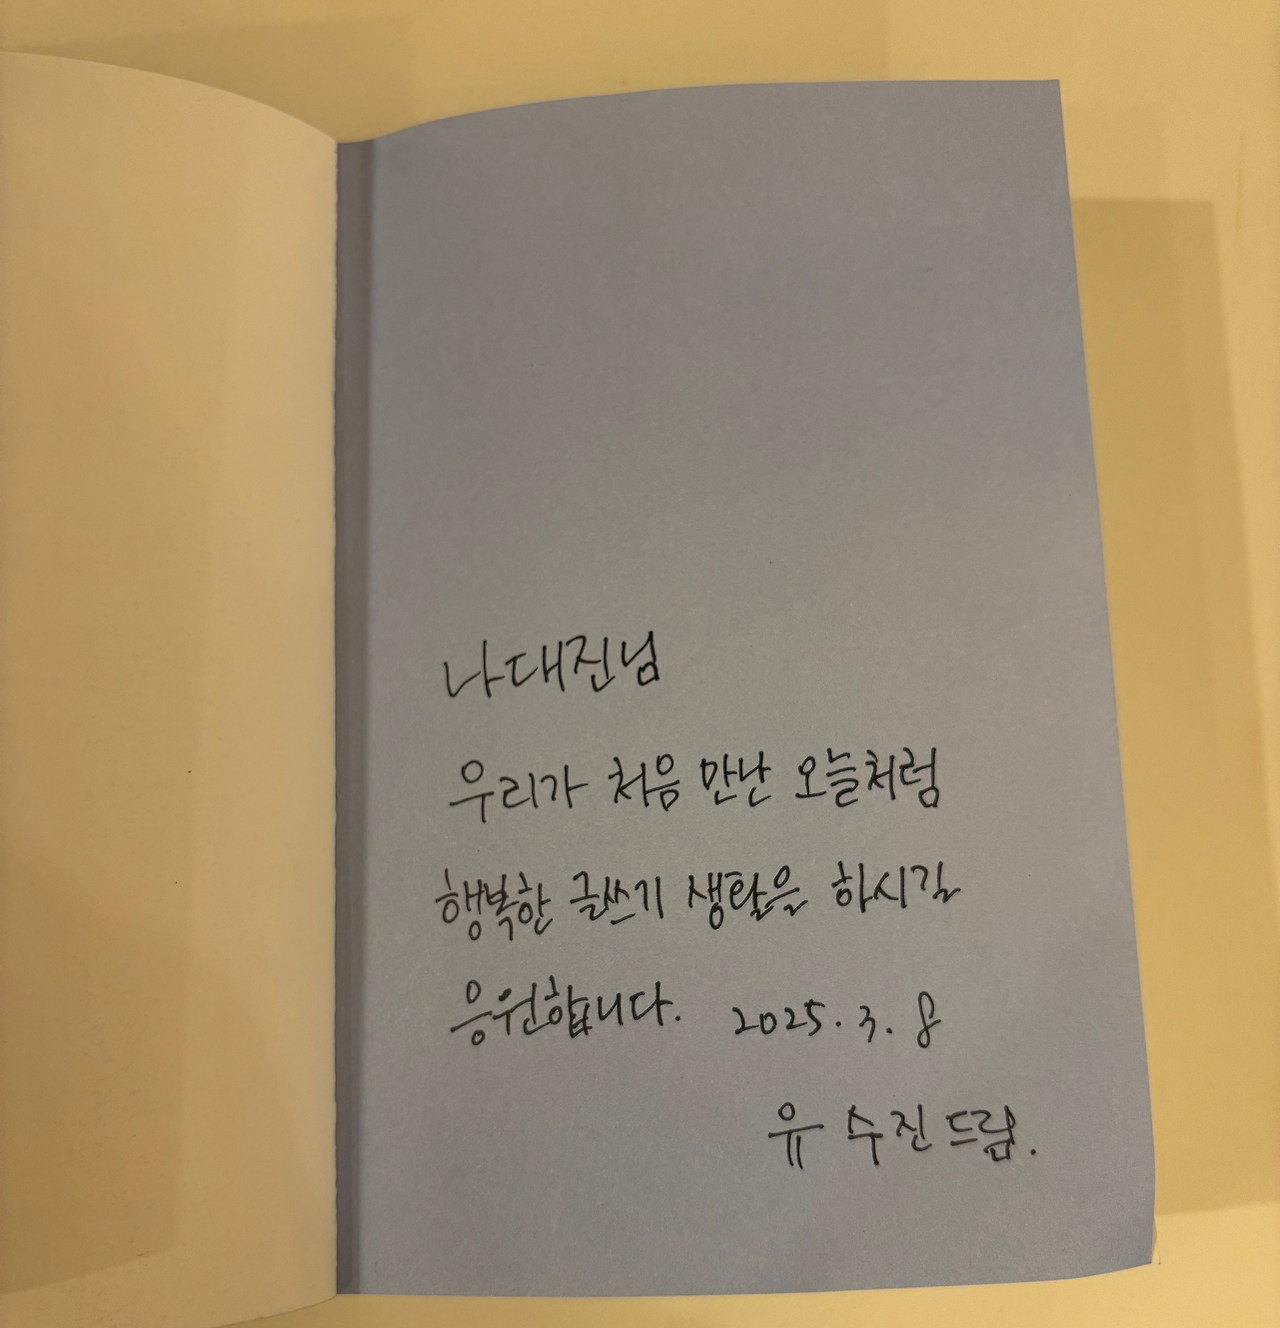 나대진님
우리가 처음 만난 오늘처럼
행복한 글쓰기 생활을 하시길
응원합니다. 2025. 3. 8
유 수진 드림.